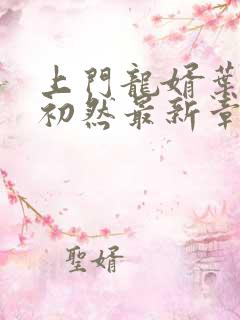 上門龍婿葉
初然最新章
聖婿